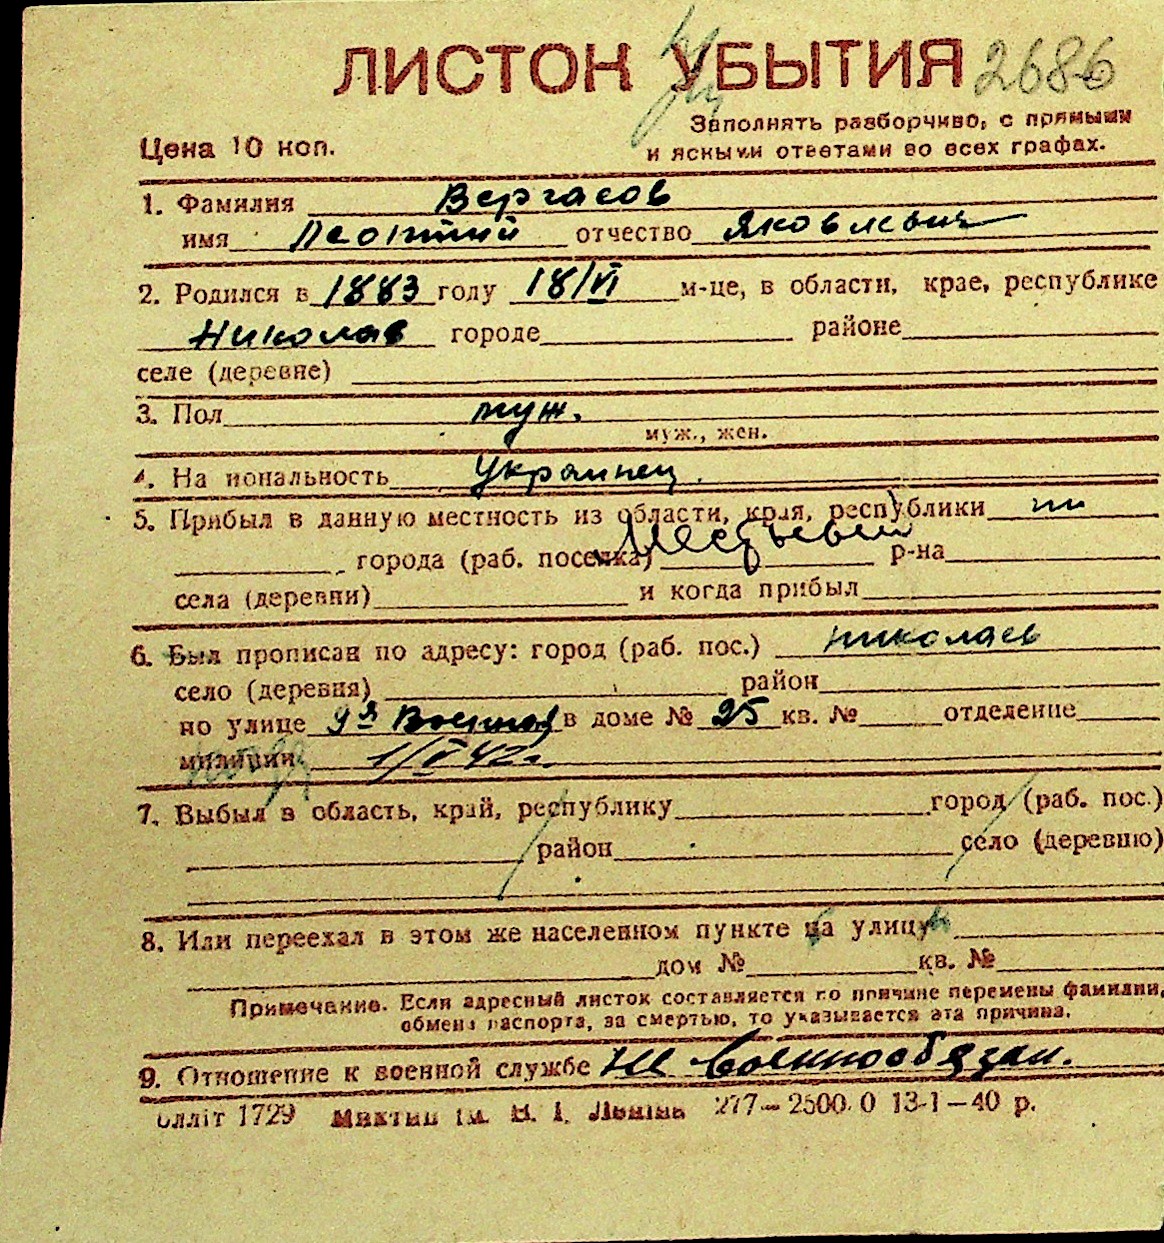 ЛИСТОК УБЫТИЯ 2686
Заполнять разборчиво, с прямыми
Цена 10 коп.
и ясными ответами во всех графах.
1. Фамилия Вергасов
имя Леонтий отчество Яковлевич
2. Родился в 1883 году 18/VI м-це, в области, крае, республике
Николаев городе районе
селе (деревне)
3. Пол муж.
муж., жен.
4. На иональность Украинец.
5. Прибыл в данную местность из области, края, республики
города (раб. поселка) Местный р-на
села (деревни) и когда прибыл
6. Был прописан по адресу: город (раб. пос.) Николаев
село (деревня) район
по улице 9я Военная в доме № 25 кв. № отделение
милиции 1/V 42 г.
7. Выбыл в область, край, республику город (раб. пос.)
район село (деревню)
8. Или переехал в этом же населенном пункте на улицу
дом № кв. №
Примечание. Если адресный листок составляется по причине перемены фамилии,
обмена паспорта, за смертью, то указывается эта причина.
9. Отношение к военной службе не военнообязан.
блліт 1729 ім. В. І. Леніна 277–2500.0 13-1–40 р.